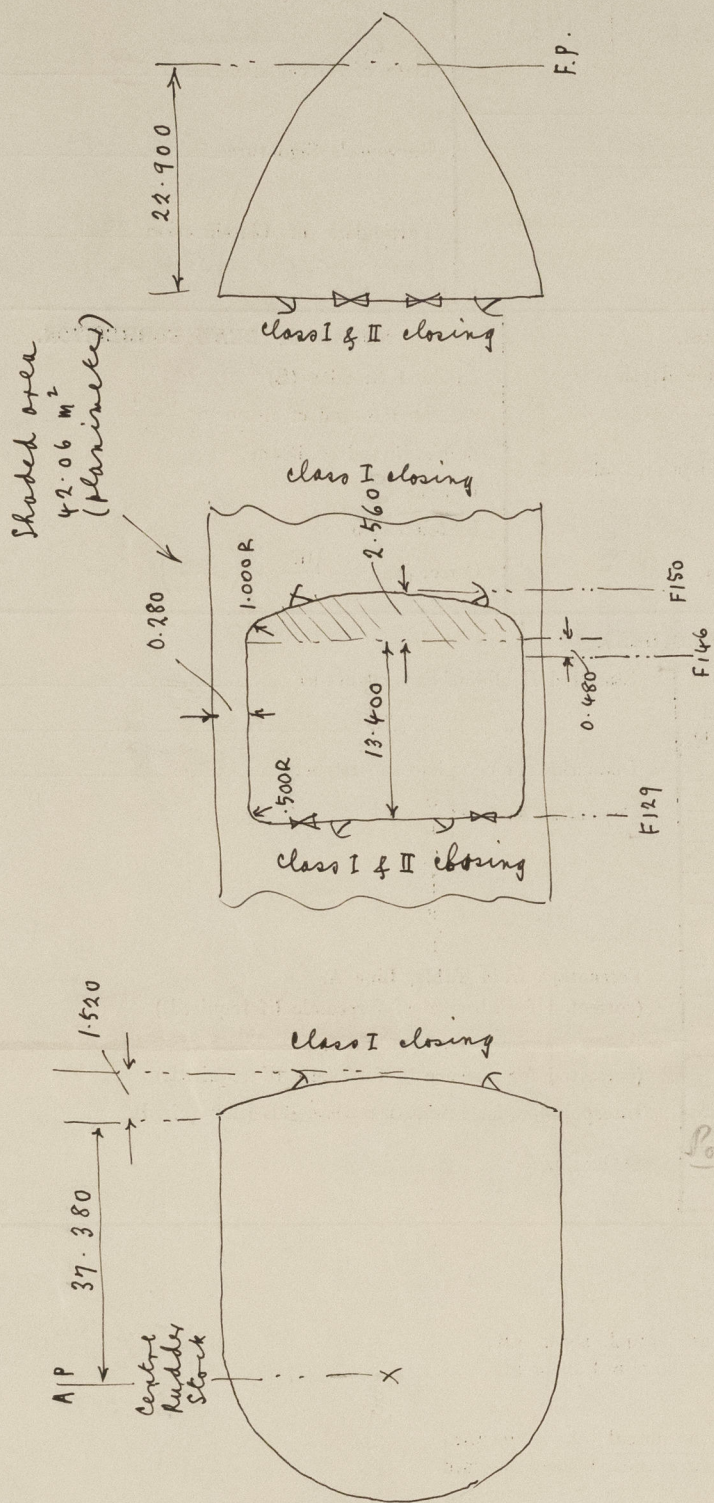 22.900
F.P.
class I & II closing
Shaded area
42.06 m²
(planimeter)
class I closing
0.280
1.000R
2.560
F150
13.400
0.480
F146
.500R
F129
class I & II closing
1.520
class I closing
37.380
A|P
Centre
Rudder
Stock